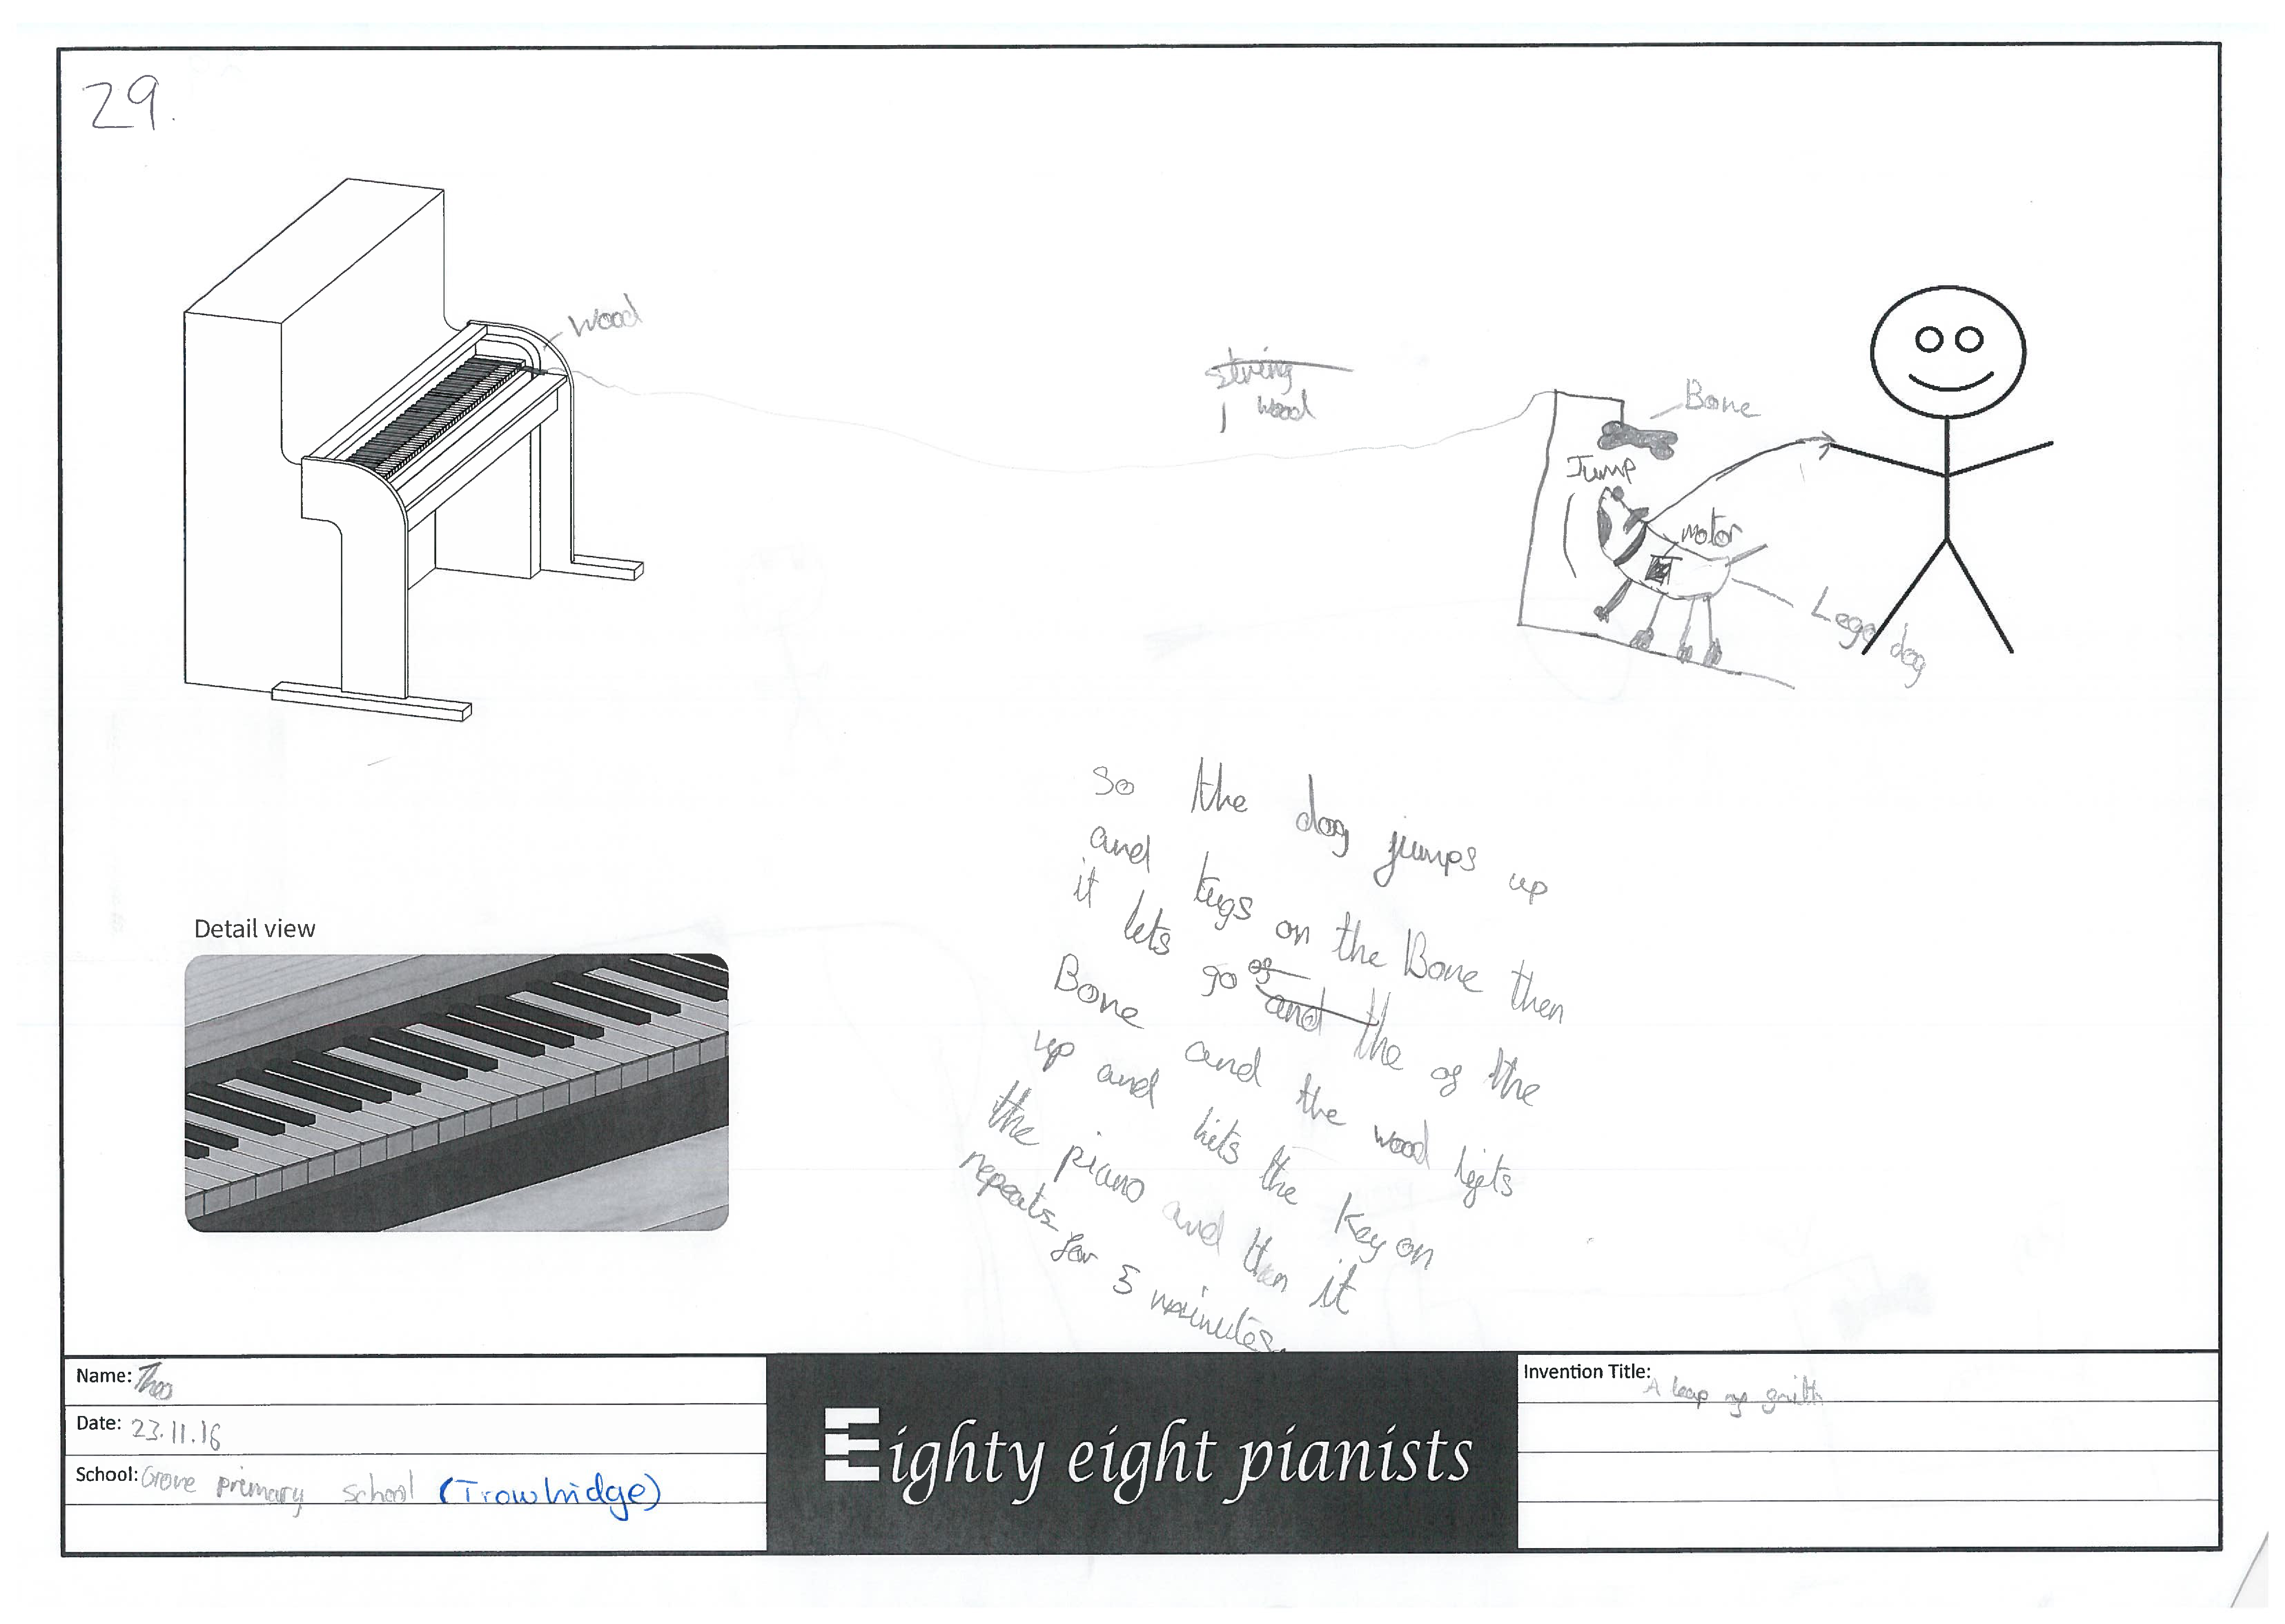 29.
Wood
string
wood
Bone
Jump
motor
Lego dog
so the dog jumps up
and tugs on the Bone then
it lets go of and the of the
Bone and the wood
up and hits the key on
the piano and then it
repeats for 5 minutes.
Detail view
Name: Theo
Date: 23.11.16
School: Grove primary school (Trowbridge)
Eighty eight pianists
Invention Title: A leap of